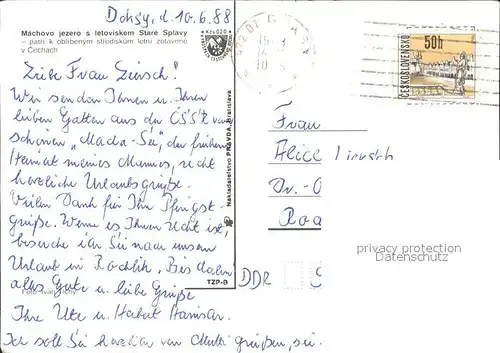 Doksy, d. 10.6.88
Máchovo jezero s letoviskem Staré Splavy
– patří k oblíbeným střediskům letní zotavené
v Čechách
Liebe Frau Ziersch!
Wir senden Ihnen u. Ihrem
lieben Gatten aus der ČSSR vom
schönen „Macha-See", der früheren
Heimat meines Mannes, recht
herzliche Urlaubsgrüße.
Vielen Dank für Ihr Pfingst-
grüße. Wenn es Ihnen recht ist,
besuche ich Sie nach unserm
Urlaub in Rochlitz. Bis dahin
alles Gute u. liebe Grüße
Ihre Ute u. Herbert
Ich soll Sie herzlich von Mutti grüßen,
Nakladatelstvo PRAVDA, Bratislava
TZP-B
ČESKOSLOVENSKO
50h
Frau
Alice
Dr.-
DDR
privacy protection
Datenschutz